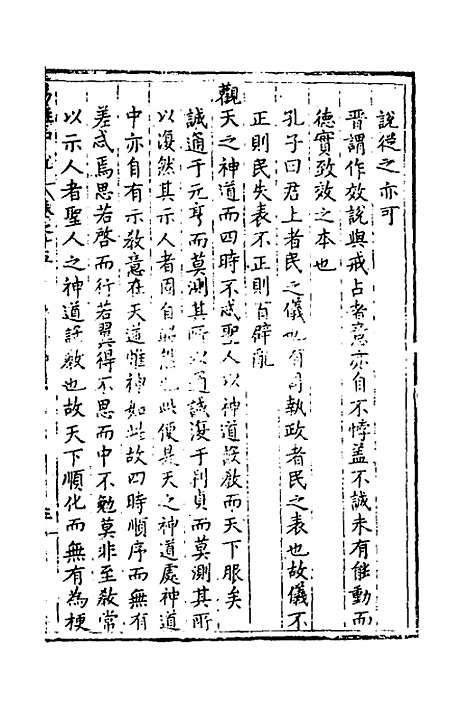 說從之亦可
晋謂作效說與戒占者意亦自不悖盖不誠未有能動而
德實致效之本也
孔子曰君上者民之儀也有司執政者民之表也故儀不
正則民失表不正則百辟亂
觀天之神道而四時不忒聖人以神道設教而天下服矣
誠通于元亨而莫測其所以通誠復于利貞而莫測其所
以復然其示人者固自昭然也此便是天之神道處神道
中亦自有示教意在天道惟神如此故四時順序而無有
差忒焉思若啓而行若翼得不思而中不勉莫非至教常
以示人者聖人之神道設教也故天下順化而無有為梗